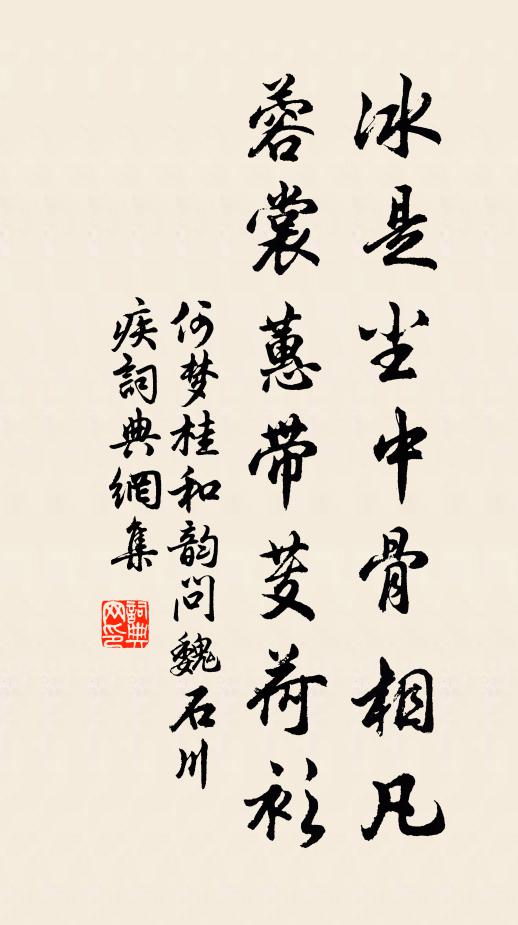 冰是尘中骨相凡
蓉裳蕙带芰荷衫
何梦桂和韵问魏石川
疾词典網集
詞典网印